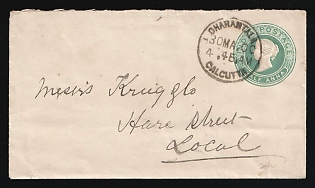 DHARAMTALA
30 MA
4.45
CALCUTTA
POSTAGE
HALF ANNA
Messrs Krugglo
Hare Street
Local